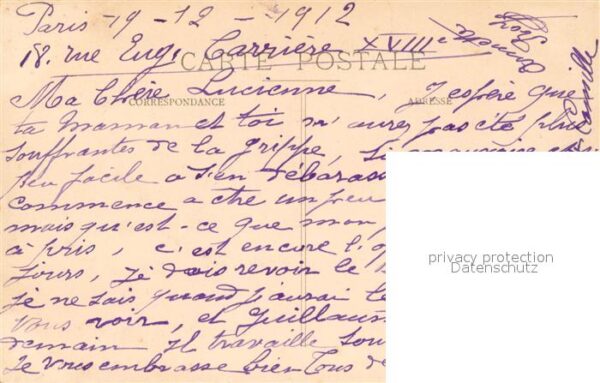 Paris - 19 - 12 - 1912
18. rue Eug. Carrière XVIIIe
CARTE POSTALE
CORRESPONDANCE
ADRESSE
Ma Chère Lucienne, J'espère que
ta maman et toi n'aurez pas été plus
souffrantes de la grippe, si
peu facile a s'en débaras
commence a être un peu
mais qu'est-ce que mon
à pris, c'est encore l'
jours, je dois revoir le
je ne sais quand j'aurai le
vous voir, et Guillaum
demain il travaille
Je vous embrasse bien Tous
Camille
privacy protection
Datenschutz